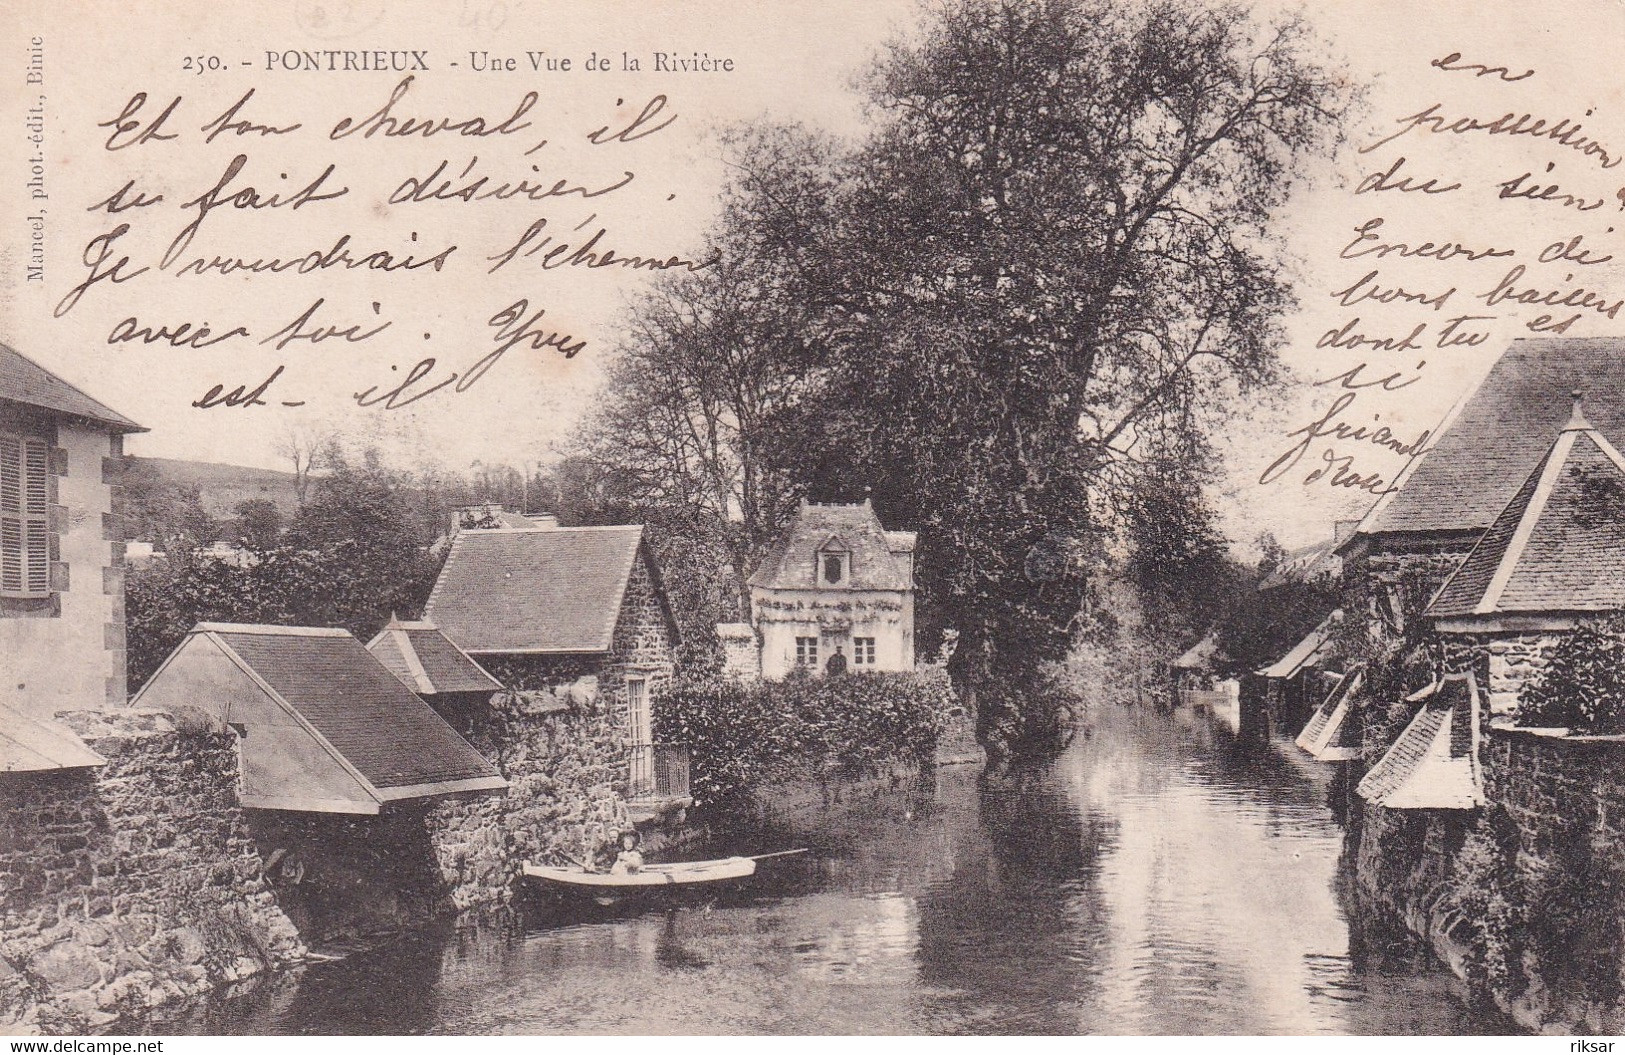 250. - PONTRIEUX - Une Vue de la Rivière
Mancel, phot.-édit., Binic
Et ton cheval, il
se fait désirer.
Je voudrais l'étrenner
avec toi. Yves
est-il
en
possession
du sien ?
Encore de
bons baisers
dont tu es
si
friand
riksar
www.delcampe.net